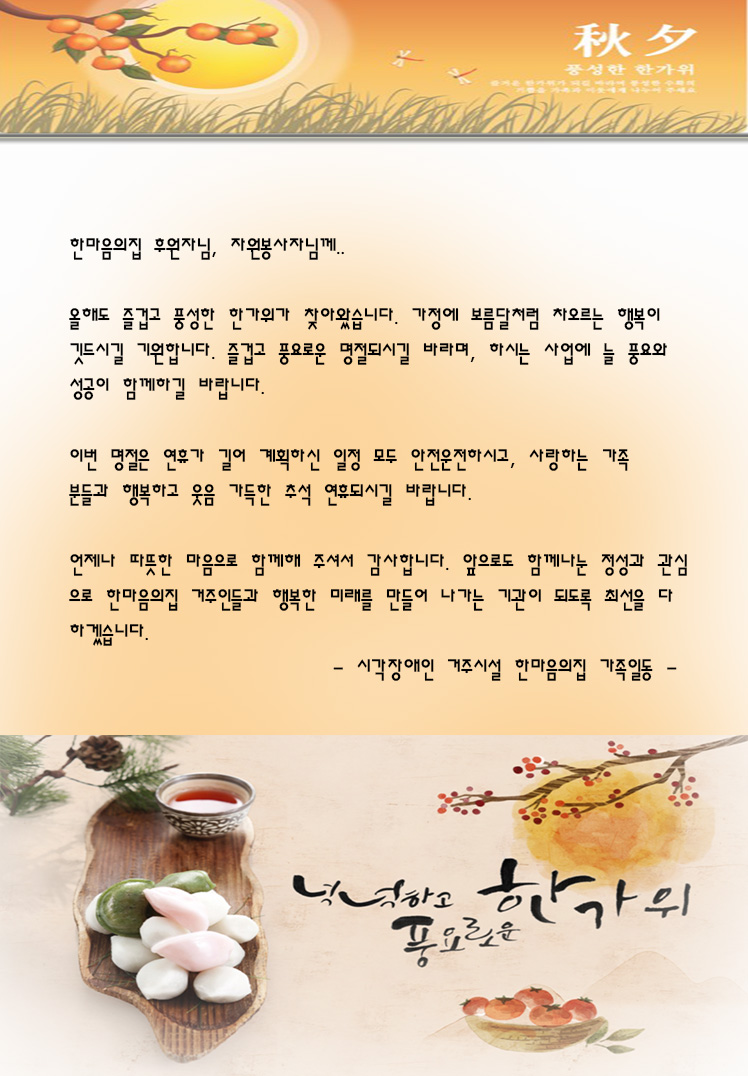 秋夕
풍성한 한가위
한마음의집 후원자님, 자원봉사자님께..
올해도 즐겁고 풍성한 한가위가 찾아왔습니다. 가정에 보름달처럼 차오르는 행복이
깃드시길 기원합니다. 즐겁고 풍요로운 명절되시길 바라며, 하시는 사업에 늘 풍요와
성공이 함께하길 바랍니다.
이번 명절은 연휴가 길어 계획하신 일정 모두 안전운전하시고, 사랑하는 가족
분들과 행복하고 웃음 가득한 추석 연휴되시길 바랍니다.
언제나 따뜻한 마음으로 함께해 주셔서 감사합니다. 앞으로도 함께나는 정성과 관심
으로 한마음의집 거주인들과 행복한 미래를 만들어 나가는 기관이 되도록 최선을 다
하겠습니다.
- 시각장애인 거주시설 한마음의집 가족일동 -
넉넉하고 한가위
풍요로운